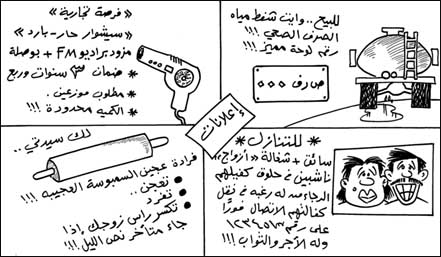 للبيع.. وايت شفط مياه
الصرف الصحي!!
رقم لوحة مميز!!!
صارف ٠٠٠
« فرصة تجارية »
« سيشوار حار-بارد »
مزود براديو FM + بوصلة
* ضمان ٣ سنوات وربع
* مطلوب موزعين.
* الكمية محدودة!!!
إعلانات
* للتنازل *
سائق + شغالة «أزواج»
ناشبين في حلوق كفيلهم
الرجاء من له رغبه في نقل
كفالتهم الاتصال فورًا
على رقم ١٢٣٤٥٦٧
وله الأجر والثواب!!!
لك سيدتي..
فرادة عجين السمبوسة العجيبه!!!
• تعجن..
• تفرد
• تكسر راس زوجك إذا
جاء متأخر نص الليل!!!